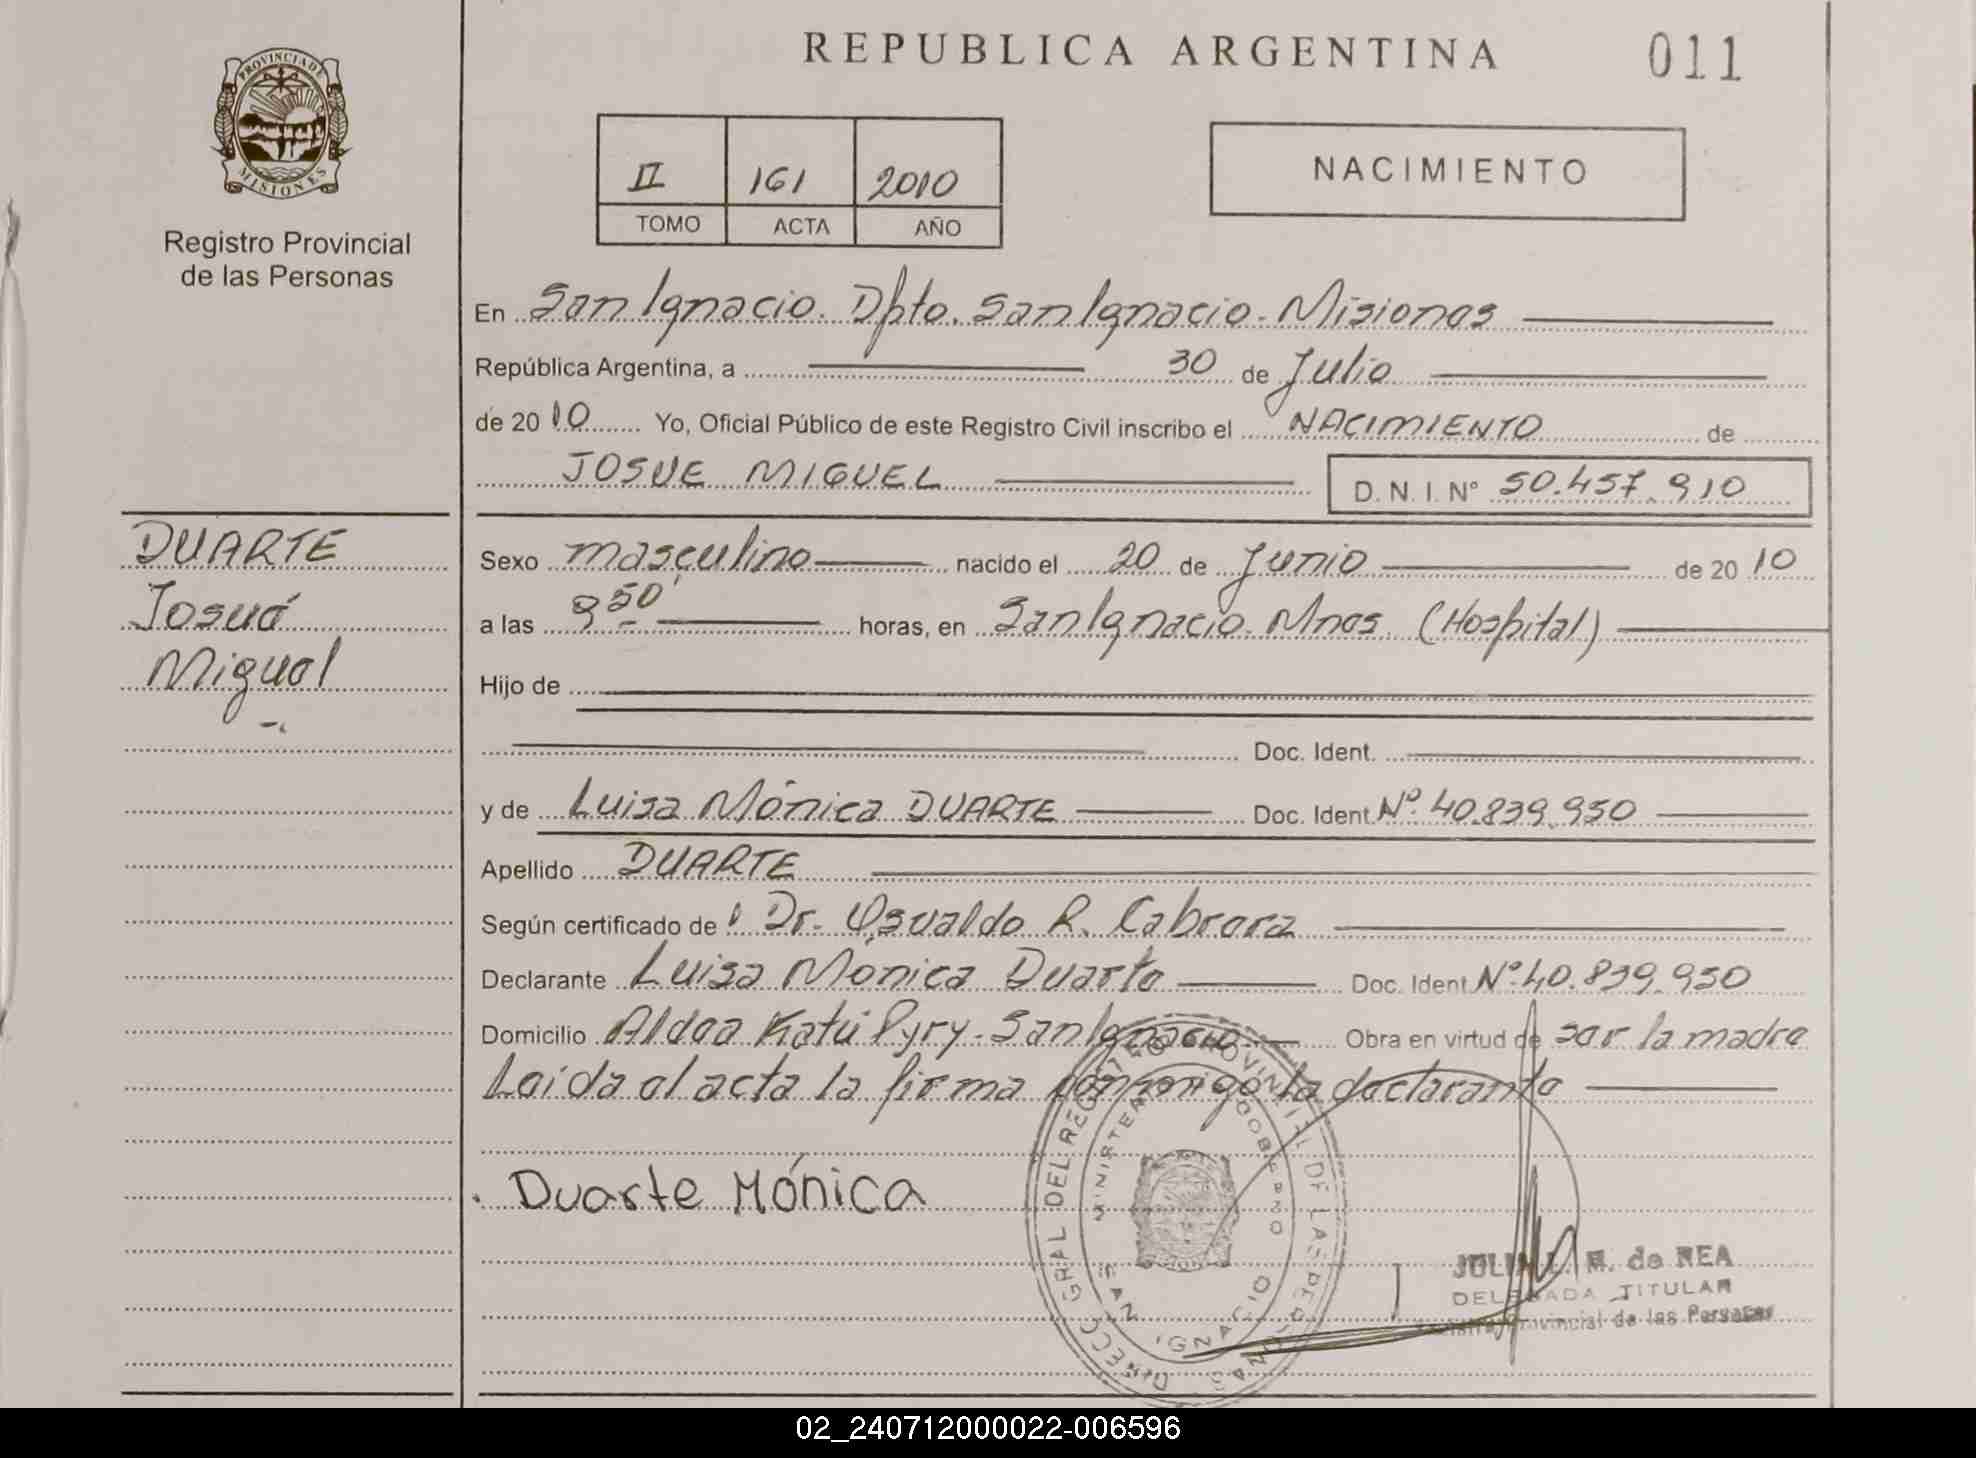 REPUBLICA ARGENTINA
011
PROVINCIA DE
MISIONES
Registro Provincial
de las Personas
II 161 2010
TOMO ACTA AÑO
NACIMIENTO
En San Ignacio. Dpto. San Ignacio. Misiones
República Argentina, a 30 de Julio
de 2010 Yo, Oficial Público de este Registro Civil inscribo el NACIMIENTO de
JOSUE MIGUEL D.N.I. Nº 50.457.910
DUARTE
Josué
Miguel
Sexo masculino nacido el 20 de Junio de 2010
a las 9 50' horas, en San Ignacio. Mnes (Hospital)
Hijo de
Doc. Ident.
y de Luisa Mónica DUARTE Doc. Ident Nº. 40.839.950
Apellido DUARTE
Según certificado de Dr. Osvaldo R. Cabrera
Declarante Luisa Mónica Duarte Doc. Ident Nº. 40.839.950
Domicilio Aldea Katú Pyry - San Ignacio Obra en virtud de ser la madre
Leída el acta la firma conmigo la declarante
Duarte Mónica
DIRECC GRAL DEL REGISTRO PROVINCIAL DE LAS PERSONAS
MINISTERIO GOBIERNO
SAN IGNACIO
JULIA L. M. de REA
DELEGADA TITULAR
Registro Provincial de las Personas
02_240712000022-006596